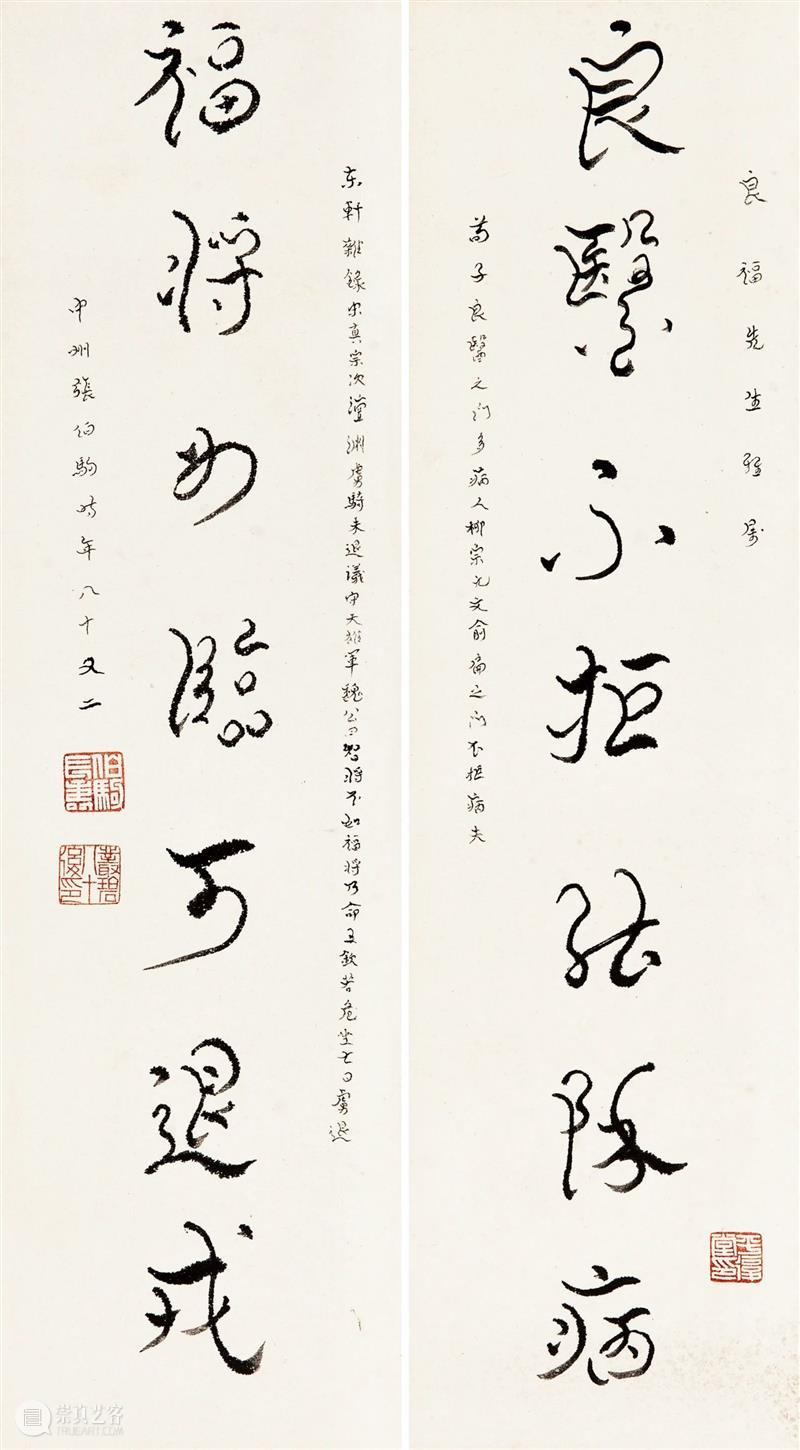 良福先生雅屬
良醫不拒能除病
荀子良醫之門多病人柳宗元文俞扁之門不拒病夫
平復堂印
東軒雜錄宋真宗次澶淵虜騎未退議守天雄軍魏公曰智將不如福將乃命王欽若危坐七日虜退
福將如臨可退戎
中州張伯駒時年八十又二
伯駒長壽
叢碧八十後印
崇真艺客
TRUEART.COM